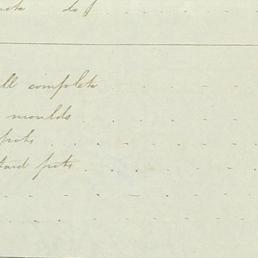 do
ll complete
moulds
pots
tard pots